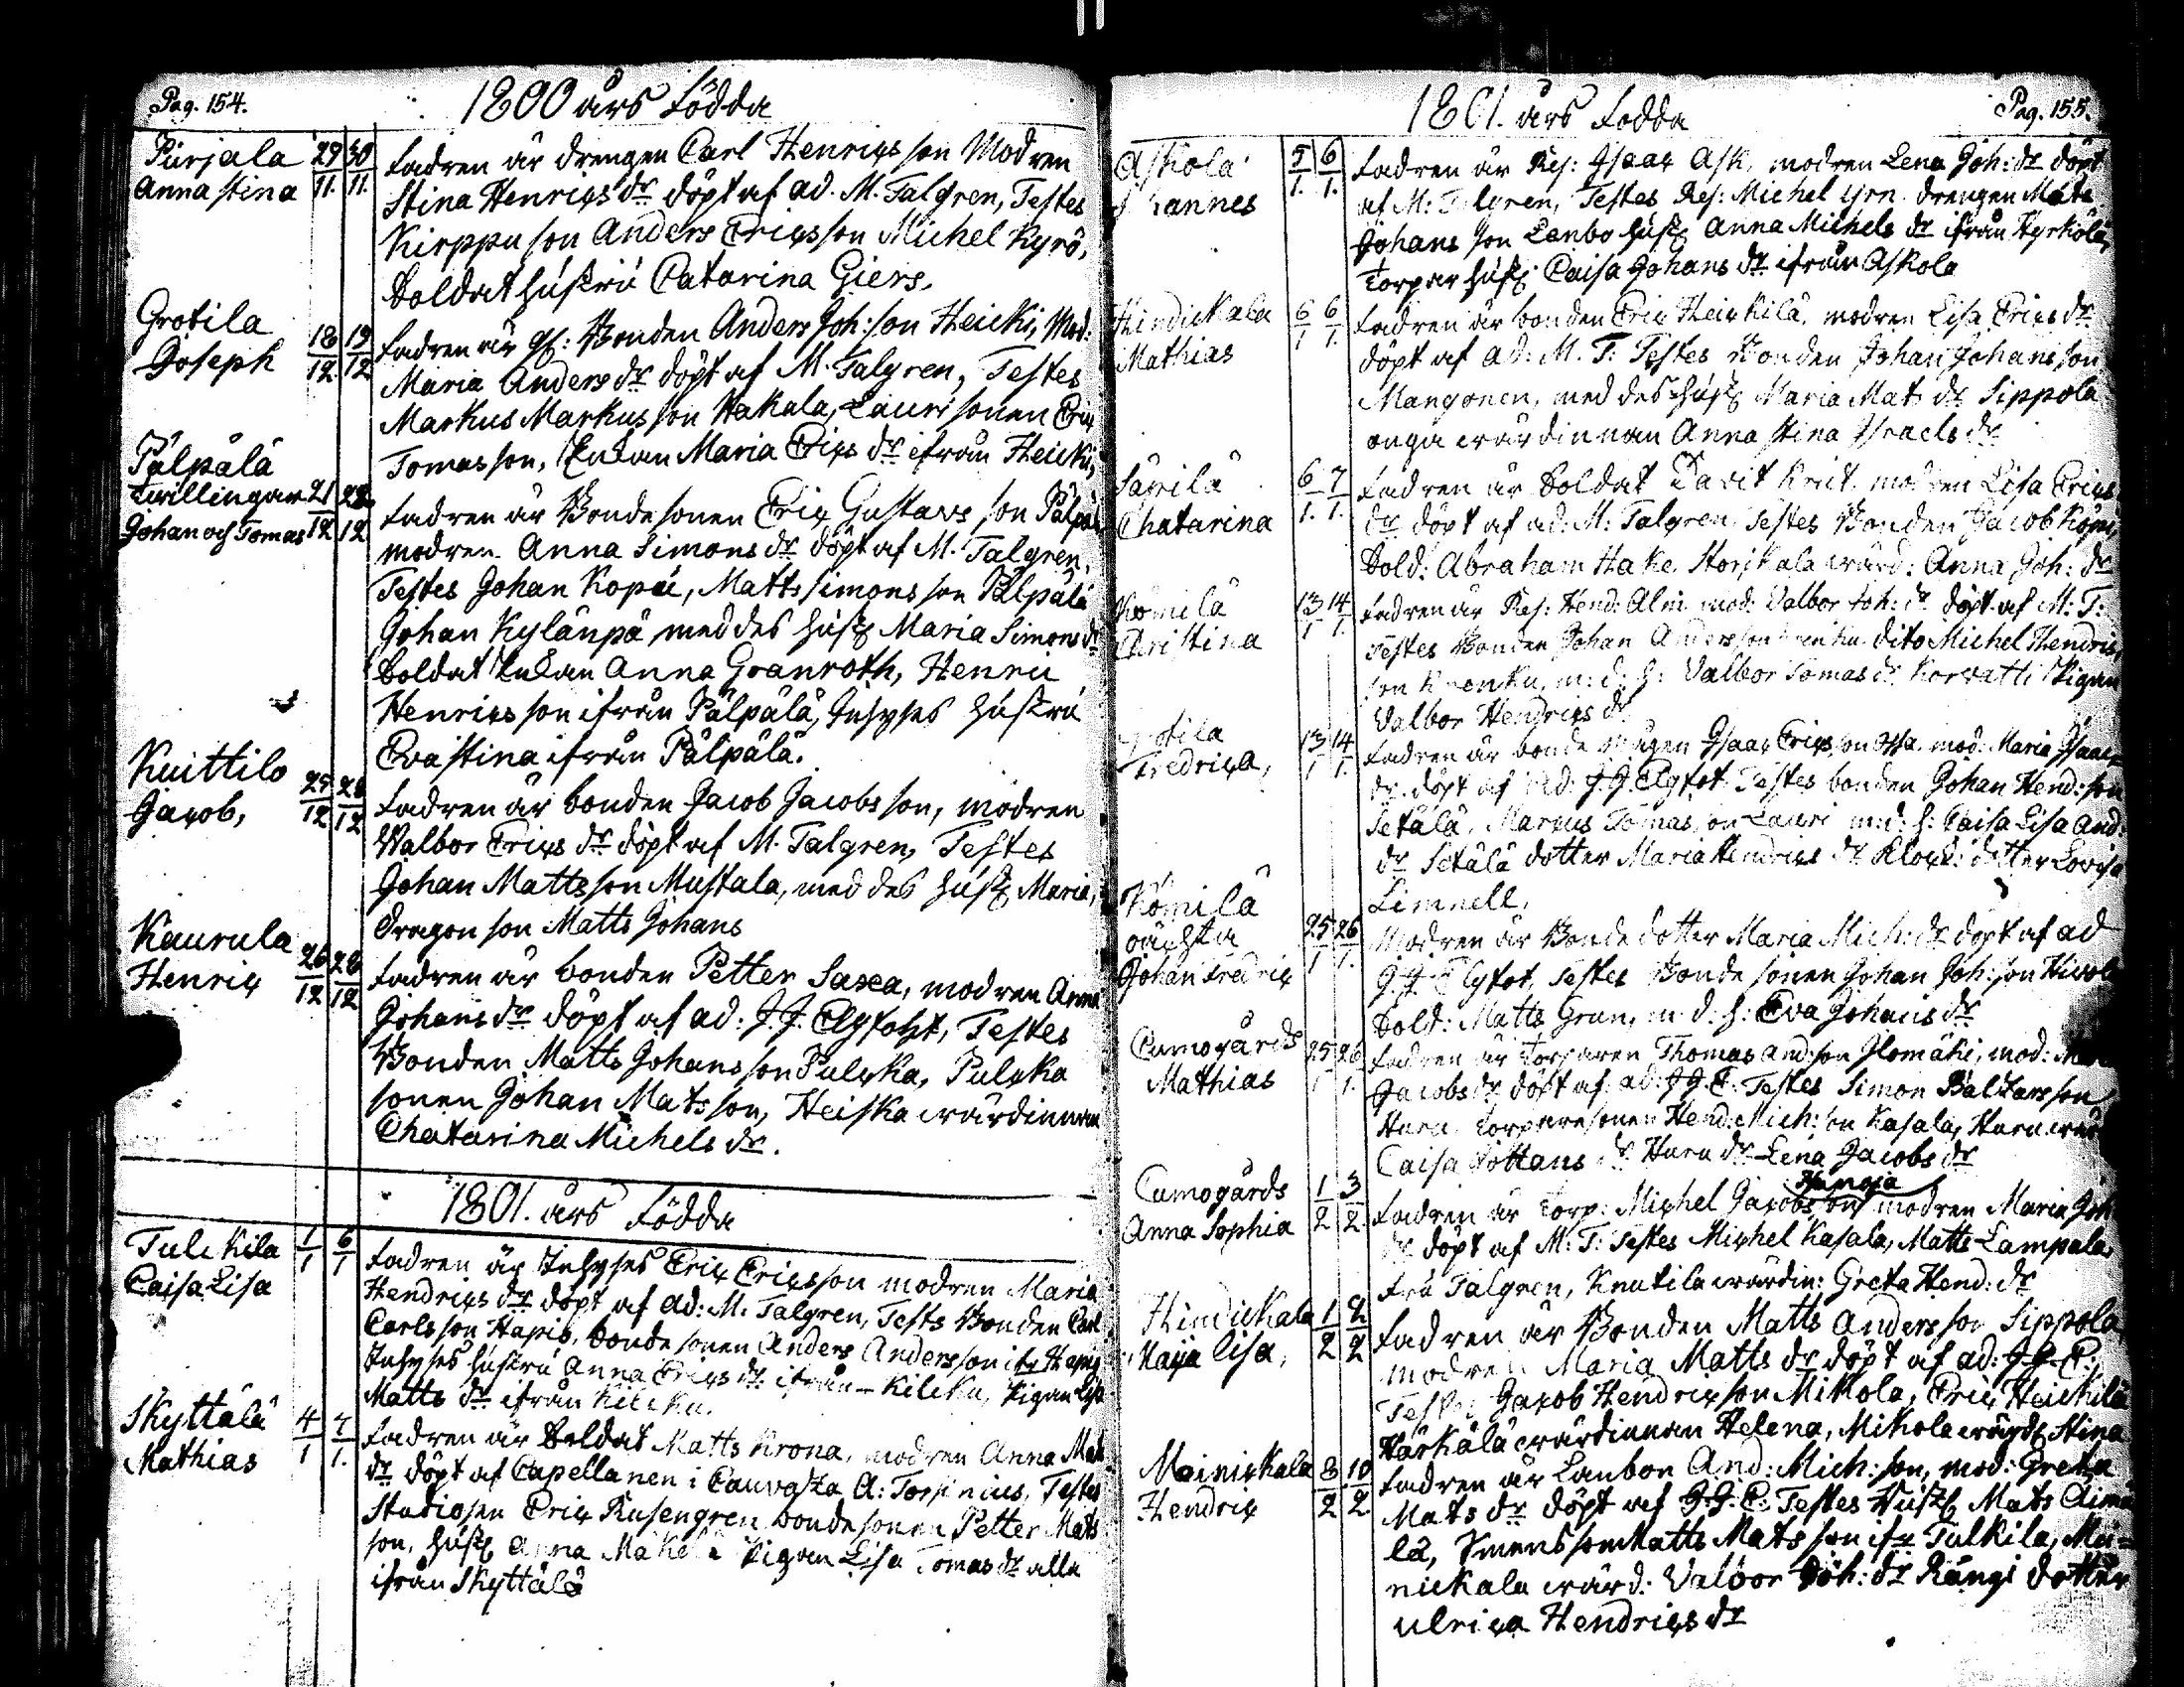 Pag. 154.
1800 års Födda
Pürjala 29/11. 30/11. Fadren är drengen Carl Henrics son Modren
Anna Stina Stina Henrics dr döpt af ad. M. Talgren, Testes
Kirppu son Anders Ericsson Michel Kyrö,
Soldat hustru Catarina Giers.
Grotila 18/12 19/12 Fadren är gf: Bonden Anders Joh: son Heicki, Mod:
Joseph Maria Anders dr döpt af M. Talgren, Testes
Markus Markus son Hakala, Lauri sonen Eric
Tomas son, Enkan Maria Erics dr ifrån Heicki,
Pälpälä
Twillingar 21/12 22/12 Fadren är Bonde sonen Eric Gustavs son Pälpälä
Johan och Tomas modren Anna Simons dr döpt af M. Talgren,
Testes Johan Kopai, Matts Simons son Pälpälä
Johan Kylänpä med des hust Maria Simons dr
Soldat Enkan Anna Granroth, Henric
Henrics son ifrån Pälpälä, Inhyses hustru
Eva Stina ifrån Pälpälä.
Kuittilo 25/12 28/12 Fadren är bonden Jacob Jacobs son, modren
Jacob, Walbor Erics dr döpt af M. Talgren, Testes
Johan Matts son Mustala, med des hust Maria,
Dragon son Matts Johans
Kaurula 26/12 28/12 Fadren är bonden Petter Saxea, modren Anna
Henric Johans dr döpt af ad: J. J. Elgfoht, Testes
Bonden Matts Johans son Pulcka, Pulcka
sonen Johan Mats son, Heiska wärdinnan
Chatarina Michels dr.
1801. års Födda
Tulckila 1/1 6/1 Fadren är Inhyses Eric Ericsson modren Maria
Caisa Lisa Hendrics dr döpt af ad: M. Talgren, Tests Bonden Carl
Carls son Hapio, bonde sonen Anders Anders son ifr Hapio
Inhyses hustru Anna Erics dr ifrån Kilcku, Pigan Lisa
Matts dr ifrån Kilcku.
Skyttälä 4/1 7/1. Fadren är Soldat Matts Krona, modren Anna Mats
Mathias dr döpt af Capellanen i Cauvatza A: Torsinius, Testes
Studiosen Eric Rusengren bonde sonen Petter Mats
son, hust Anna Mäkelä Pigan Lisa Tomas dr alla
ifrån Skyttälä
Pag. 155.
1801. års Födda
Askola 5/1. 6/1. Fadren är Res: Isaac Ask, modren Lena Joh: dr döpt
Johannes af M: Talgren, Testes Res: Michel Yrn drengen Mats
Johans son Lanbo hust Anna Michels dr ifrån Hyrkölä,
Torpar hust Caisa Johans dr ifrån Askola
Hindickala 6/1 6/1. Fadren är bonden Eric Heickilä, modren Lisa Erics dr
Mathias döpt af ad: M. T: Testes Bonden Johan Johans son
Mangonen, med des hust Maria Mats dr Sippola
unga wärdinnan Anna Stina Israels dr
Säxilä 6/1. 7/1. Fadren är Soldat Davit Krut, modren Lisa Erics
Chatarina dr döpt af ad: M: Talgren Testes Bonden Jacob Kömi,
Sold: Abraham Hake Storskala wärd: Anna Joh: dr
Kömilä 13/1 14/1. Fadren är Res: Hend: Alm mod: Valbor Joh: dr döpt af M: T:
Christina Testes Bonden Johan Andersson dito Michel Hendrics
son, m: d: h: Valbor Tomas dr Korvatti Pigan
Valbor Hendrics dr
13/1 14/1. Fadren är bonde mågen Isaac Ericsson, mod: Maria Isaacs
Fredrica, dr döpt af ad: J. J. Elgfot Testes bonden Johan Hend: son
Setälä, Marcus Tomas son Lauri m: d: h: Caisa Lisa And:
dr Setälä dotter Maria Hendrics dr Klock: dotter Lovisa
Limnell.
Kömilä
oächta 25/1 26/1. Modren är Bonde dotter Maria Mich: dr döpt af ad
Johan Fredric J. J. Elgfot, Testes Bonde sonen Johan Joh: son
Sold: Matts Gran, m: d: h: Eva Johans dr
Cumogårds 25/1 26/1. Fadren är torparen Thomas And: son Ilomäki, mod:
Mathias Jacobs dr döpt af ad: J J. E. Testes Simon Baltzars son
Haru Torpare sonen Hend: Mich: son Kasala, Haru wärd
Caisa Johans dr Haru dr Lena Jacobs dr
Hanoja
Cumogårds 1/2 3/2 Fadren är Torp: Michel Jacobs son modren Maria Joh
Anna Sophia dr döpt af M: T: Testes Michel Kasala, Matts Lampala,
Fru Talgren, Knutila wärdin: Greta Hend: dr
Hindickala 1/2 2/2 Fadren är Bonden Matts Anders son Sippola
Maija Lisa, modren Maria Matts dr döpt af ad: J J. E.
Testes Jacob Hendric son Mikola, Eric Heickilä
Härkälä wärdinnan Helena, Mikola wärds Stina
Mainickala 8/2 10/2 Fadren är Lanbon And: Mich: son, mod: Greta
Hendric Mats dr döpt af J. J. E. Testes Mats
lä, Smens son Matts Mats son ifr Tulkila, Mai=
nickala wärd: Valbor Joh: dr Rängi dotter
Ulrica Hendrics dr